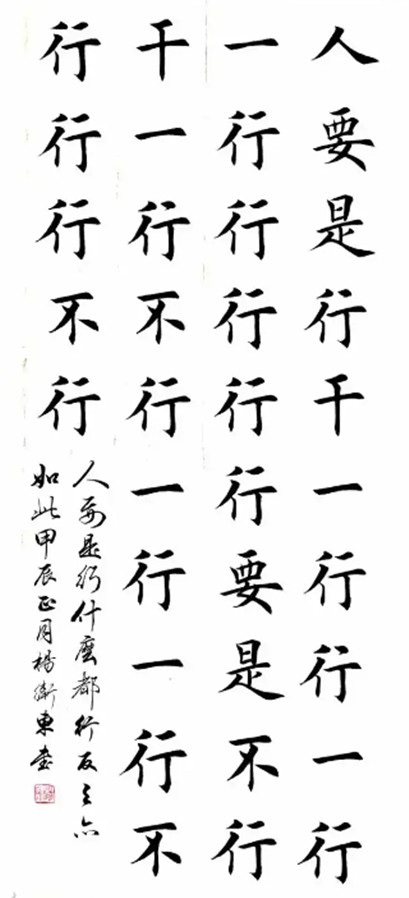 人要是行干一行行一行
一行行行行行要是不行
干一行不行一行一行不
行行行不行
人要是行什麼都行反之亦
如此甲辰正月楊衛東書